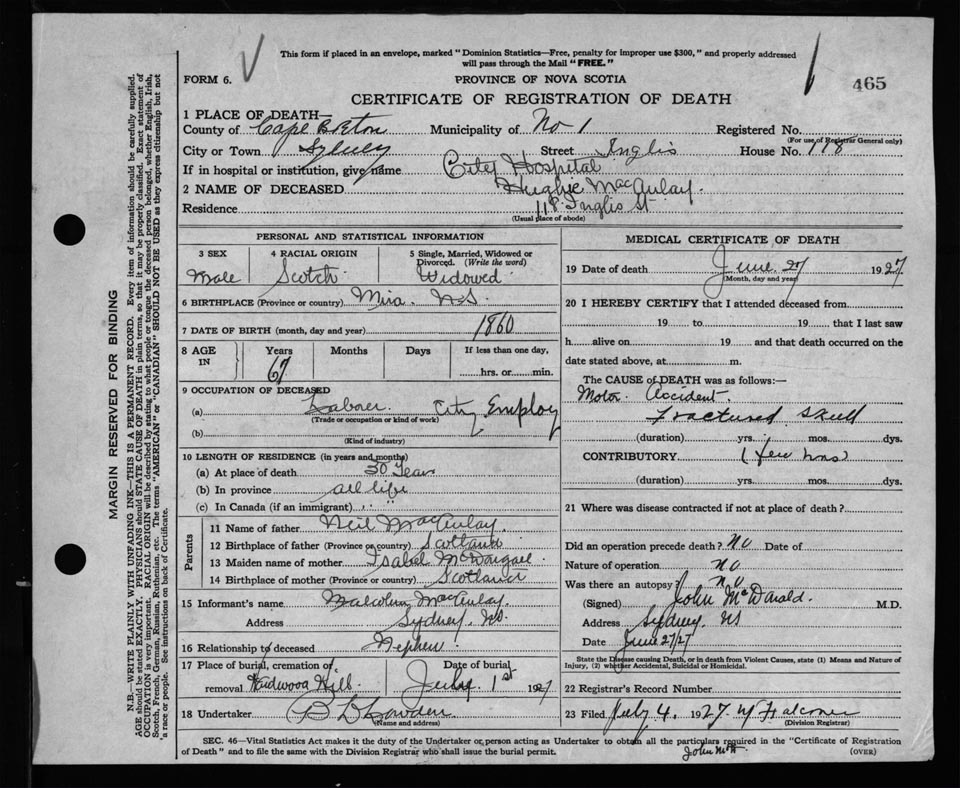 This form if placed in an envelope, marked "Dominion Statistics—Free, penalty for improper use $300," and properly addressed
will pass through the Mail "FREE."
465
FORM 6.
PROVINCE OF NOVA SCOTIA
CERTIFICATE OF REGISTRATION OF DEATH
1 PLACE OF DEATH—
County of Cape Breton Municipality of No 1 Registered No.
(For use of Registrar General only)
City or Town Sydney Street Inglis House No. 118
If in hospital or institution, give name City Hospital
2 NAME OF DECEASED Hughie MacAulay.
Residence 118 Inglis St
(Usual place of abode)
PERSONAL AND STATISTICAL INFORMATION
3 SEX 4 RACIAL ORIGIN 5 Single, Married, Widowed or
Divorced. (Write the word)
Male Scotch Widowed
6 BIRTHPLACE (Province or country) Mira. N.S.
7 DATE OF BIRTH (month, day and year) 1860
8 AGE IN Years Months Days If less than one day,
67 hrs. or min.
9 OCCUPATION OF DECEASED
(a) Laborer. City Employ
(Trade or occupation or kind of work)
(b)
(Kind of industry)
10 LENGTH OF RESIDENCE (in years and months)
(a) At place of death 30 Years
(b) In province all life
(c) In Canada (if an immigrant) " "
Parents
11 Name of father Neil MacAulay.
12 Birthplace of father (Province or country) Scotland
13 Maiden name of mother Isabel
14 Birthplace of mother (Province or country) Scotland
15 Informant's name Malcolm MacAulay.
Address Sydney, N.S.
16 Relationship to deceased Nephew
17 Place of burial, cremation or Date of burial
removal Hardwood Hill July 1st 1927
18 Undertaker
(Name and address)
MEDICAL CERTIFICATE OF DEATH
19 Date of death June 27 1927
(Month, day and year)
20 I HEREBY CERTIFY that I attended deceased from
19 to 19 that I last saw
h alive on 19 and that death occurred on the
date stated above, at m.
The CAUSE of DEATH was as follows:—
Motor Accident.
Fractured Skull
(duration) yrs. mos. dys.
CONTRIBUTORY (few hrs)
(duration) yrs. mos. dys.
21 Where was disease contracted if not at place of death?
Did an operation precede death? No Date of
Nature of operation No
Was there an autopsy? No
(Signed) John McDonald. M.D.
Address Sydney. NS
Date June 27/27
State the Disease causing Death, or in death from Violent Causes, state (1) Means and Nature of
Injury, (2) whether Accidental, Suicidal or Homicidal.
22 Registrar's Record Number
23 Filed July 4, 1927 Falconer
(Division Registrar)
SEC. 46—Vital Statistics Act makes it the duty of the Undertaker or person acting as Undertaker to obtain all the particulars required in the "Certificate of Registration
of Death" and to file the same with the Division Registrar who shall issue the burial permit.
(OVER)
MARGIN RESERVED FOR BINDING
N.B.—WRITE PLAINLY WITH UNFADING INK—THIS IS A PERMANENT RECORD. Every item of information should be carefully supplied.
AGE should be stated EXACTLY. PHYSICIANS should STATE CAUSE OF DEATH in plain terms, so that it may be properly classified. Exact statement of
OCCUPATION is very important. RACIAL ORIGIN will be described by stating to what people or tongue the deceased person belonged, whether English, Irish,
Scotch, French, German, Russian, Ruthenian, etc. The terms "AMERICAN" or "CANADIAN" SHOULD NOT BE USED as they express citizenship but not
a race or people. See instructions on back of Certificate.